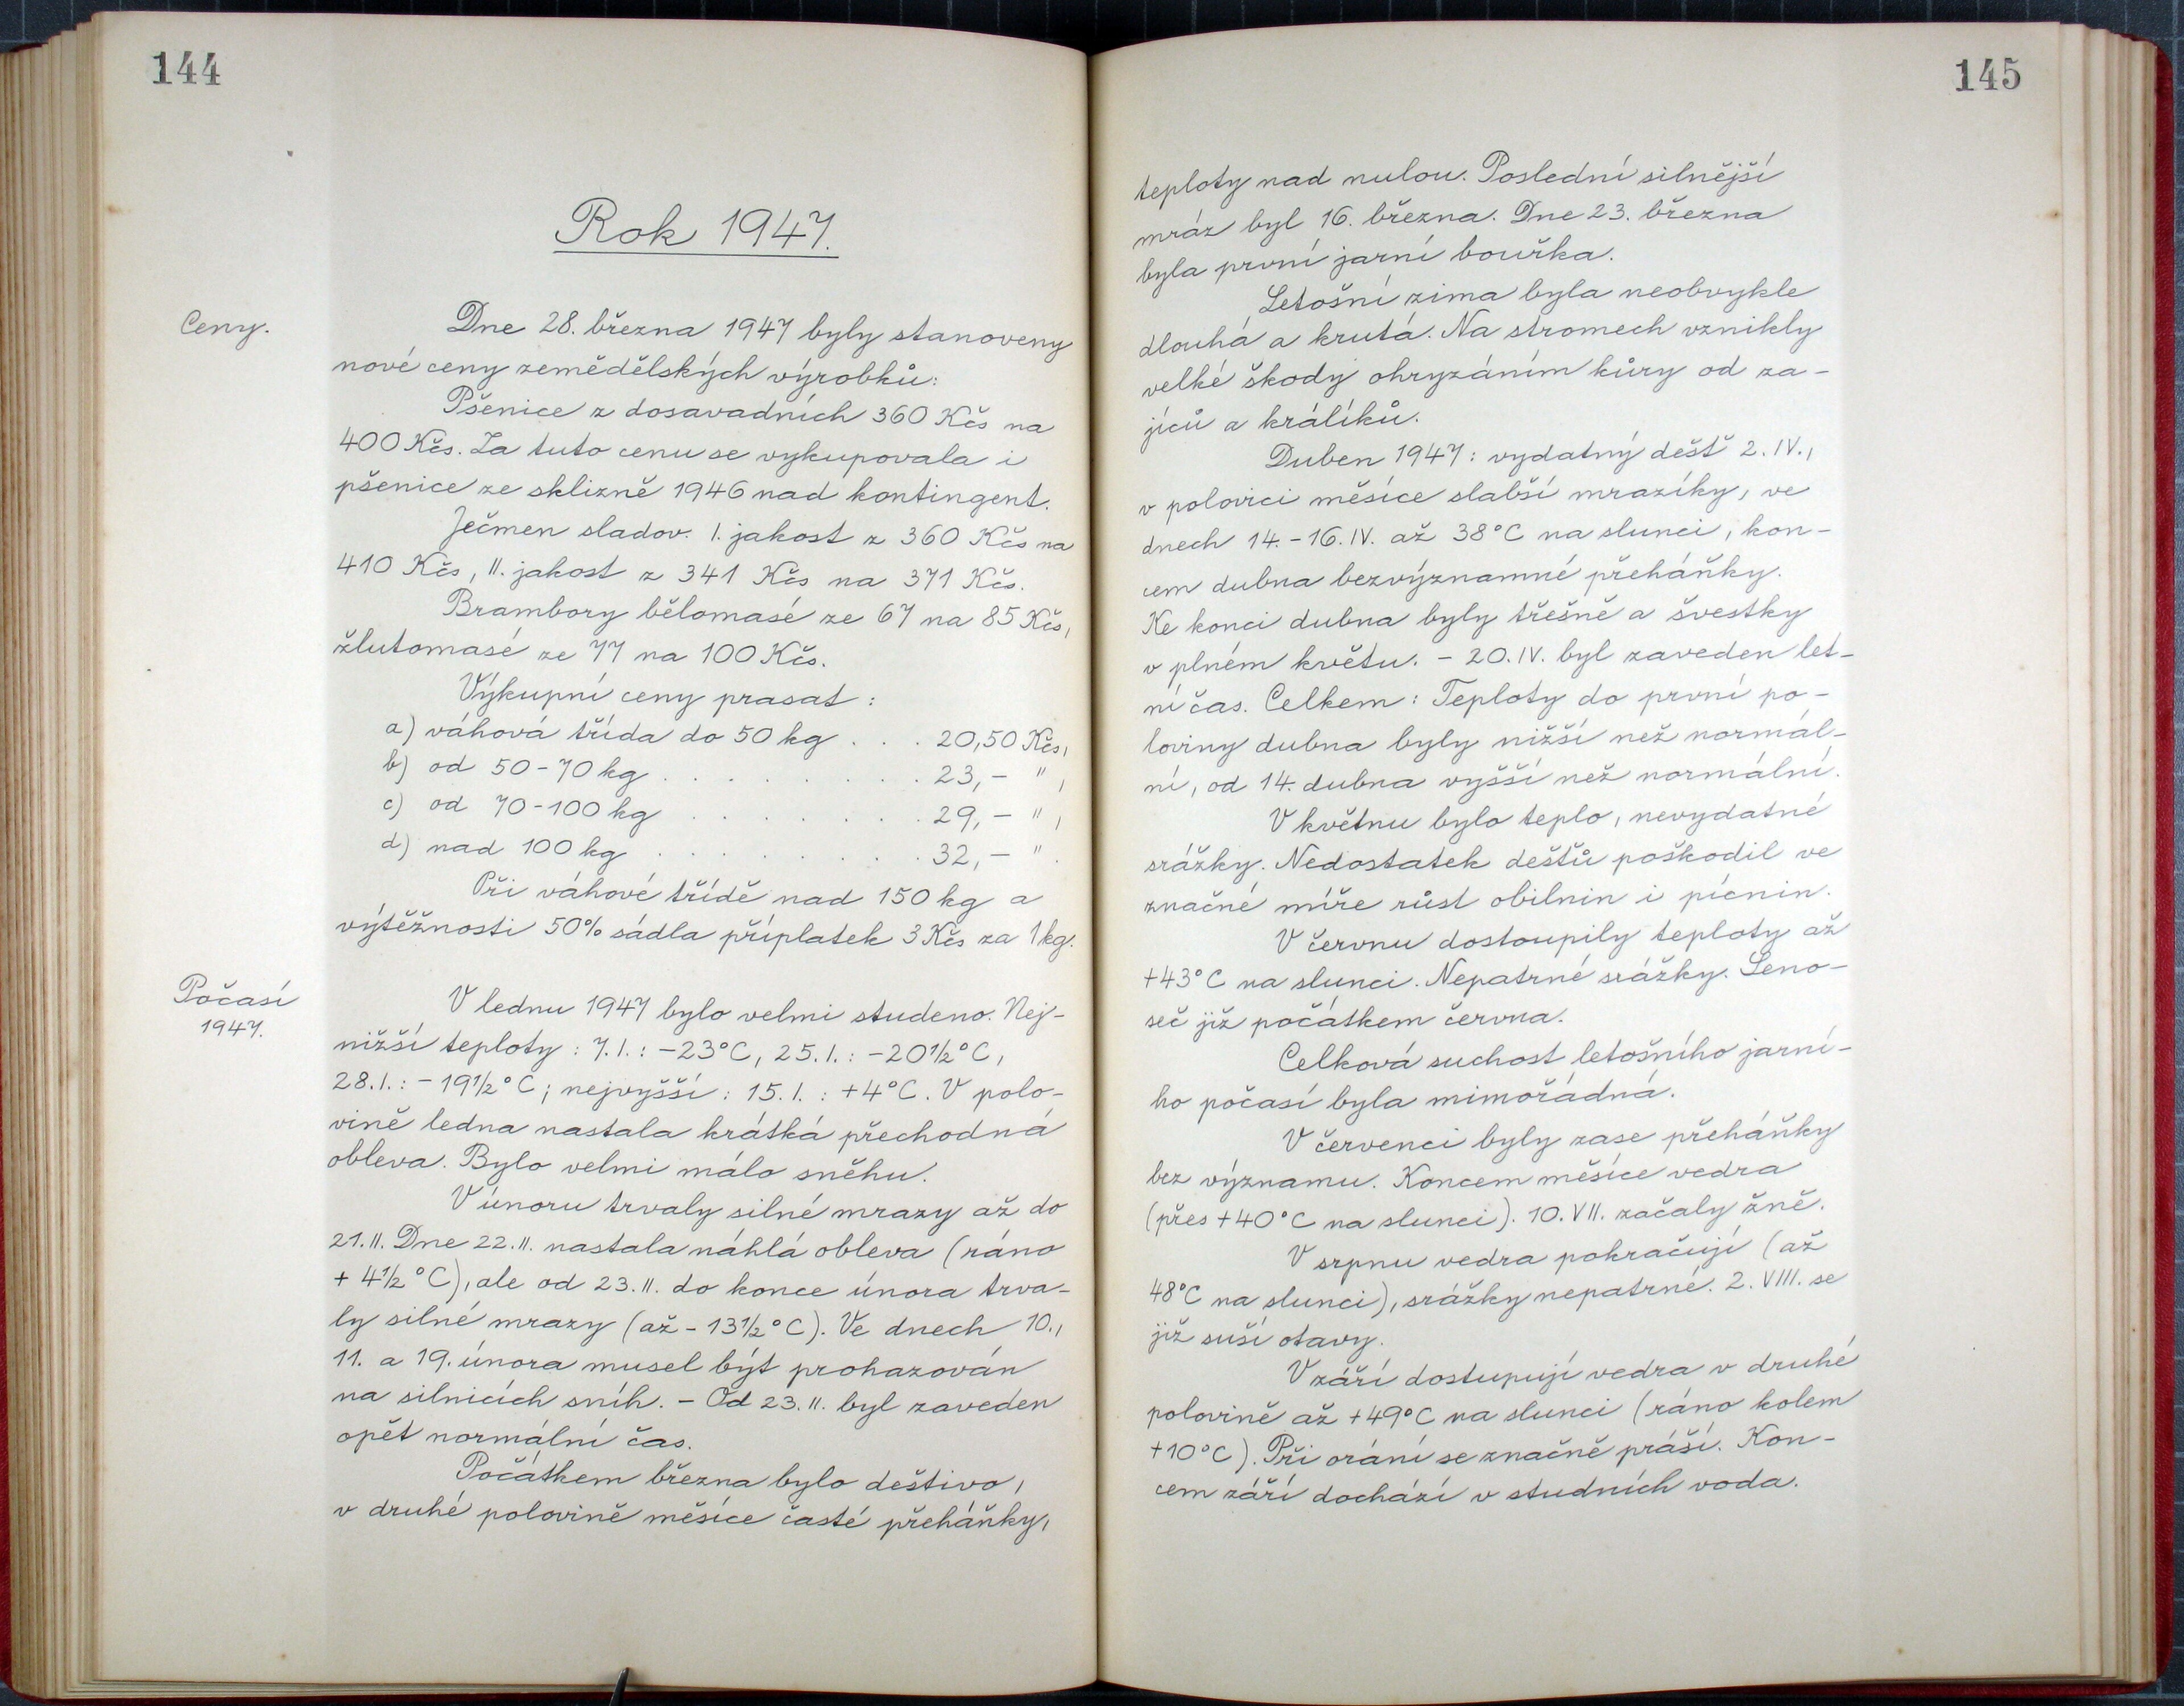 144
Rok 1947.
Ceny.
Dne 28. března 1947 byly stanoveny
nové ceny zemědělských výrobků:
Pšenice z dosavadních 360 Kčs na
400 Kčs. Za tuto cenu se vykupovala i
pšenice ze sklizně 1946 nad kontingent.
Ječmen sladov. I. jakost z 360 Kčs na
410 Kčs, II. jakost z 341 Kčs na 371 Kčs.
Brambory bělomasé ze 67 na 85 Kčs,
žlutomasé ze 77 na 100 Kčs.
Výkupní ceny prasat:
a) váhová třída do 50 kg . . . 20,50 Kčs,
b) od 50-70 kg . . . . . . . . . 23,- ",
c) od 70-100 kg . . . . . . . . 29,- ",
d) nad 100 kg . . . . . . . . . 32,- ".
Při váhové třídě nad 150 kg a
výtěžnosti 50% sádla příplatek 3 Kčs za 1 kg.
Počasí
1947.
V lednu 1947 bylo velmi studeno. Nej-
nižší teploty: 7.I.: -23°C, 25.I.: -20½°C,
28.I.: -19½°C; nejvyšší: 15.I.: +4°C. V polo-
vině ledna nastala krátká přechodná
obleva. Bylo velmi málo sněhu.
V únoru trvaly silné mrazy až do
21.II. Dne 22.II. nastala náhlá obleva (ráno
+4½°C), ale od 23.II. do konce února trva-
ly silné mrazy (až -13½°C). Ve dnech 10.,
11. a 19. února musel být prohazován
na silnicích sníh. - Od 23.II. byl zaveden
opět normální čas.
Počátkem března bylo deštivo,
v druhé polovině měsíce časté přeháňky,
145
teploty nad nulou. Poslední silnější
mráz byl 16. března. Dne 23. března
byla první jarní bouřka.
Letošní zima byla neobvykle
dlouhá a krutá. Na stromech vznikly
velké škody ohryzáním kůry od za-
jíců a králíků.
Duben 1947: vydatný déšť 2.IV.,
v polovici měsíce slabší mrazíky, ve
dnech 14.-16.IV. až 38°C na slunci, kon-
cem dubna bezvýznamné přeháňky.
Ke konci dubna byly třešně a švestky
v plném květu. - 20.IV. byl zaveden let-
ní čas. Celkem: Teploty do první po-
loviny dubna byly nižší než normál-
ní, od 14. dubna vyšší než normální.
V květnu bylo teplo, nevydatné
srážky. Nedostatek dešťů poškodil ve
značné míře růst obilnin i pícnin.
V červnu dostoupily teploty až
+43°C na slunci. Nepatrné srážky. Seno-
seč již počátkem června.
Celková suchost letošního jarní-
ho počasí byla mimořádná.
V červenci byly zase přeháňky
bez významu. Koncem měsíce vedra
(přes +40°C na slunci). 10.VII. začaly žně.
V srpnu vedra pokračují (až
48°C na slunci), srážky nepatrné. 2.VIII. se
již suší otavy.
V září dostupují vedra v druhé
polovině až +49°C na slunci (ráno kolem
+10°C). Při orání se značně práší. Kon-
cem září dochází v studních voda.